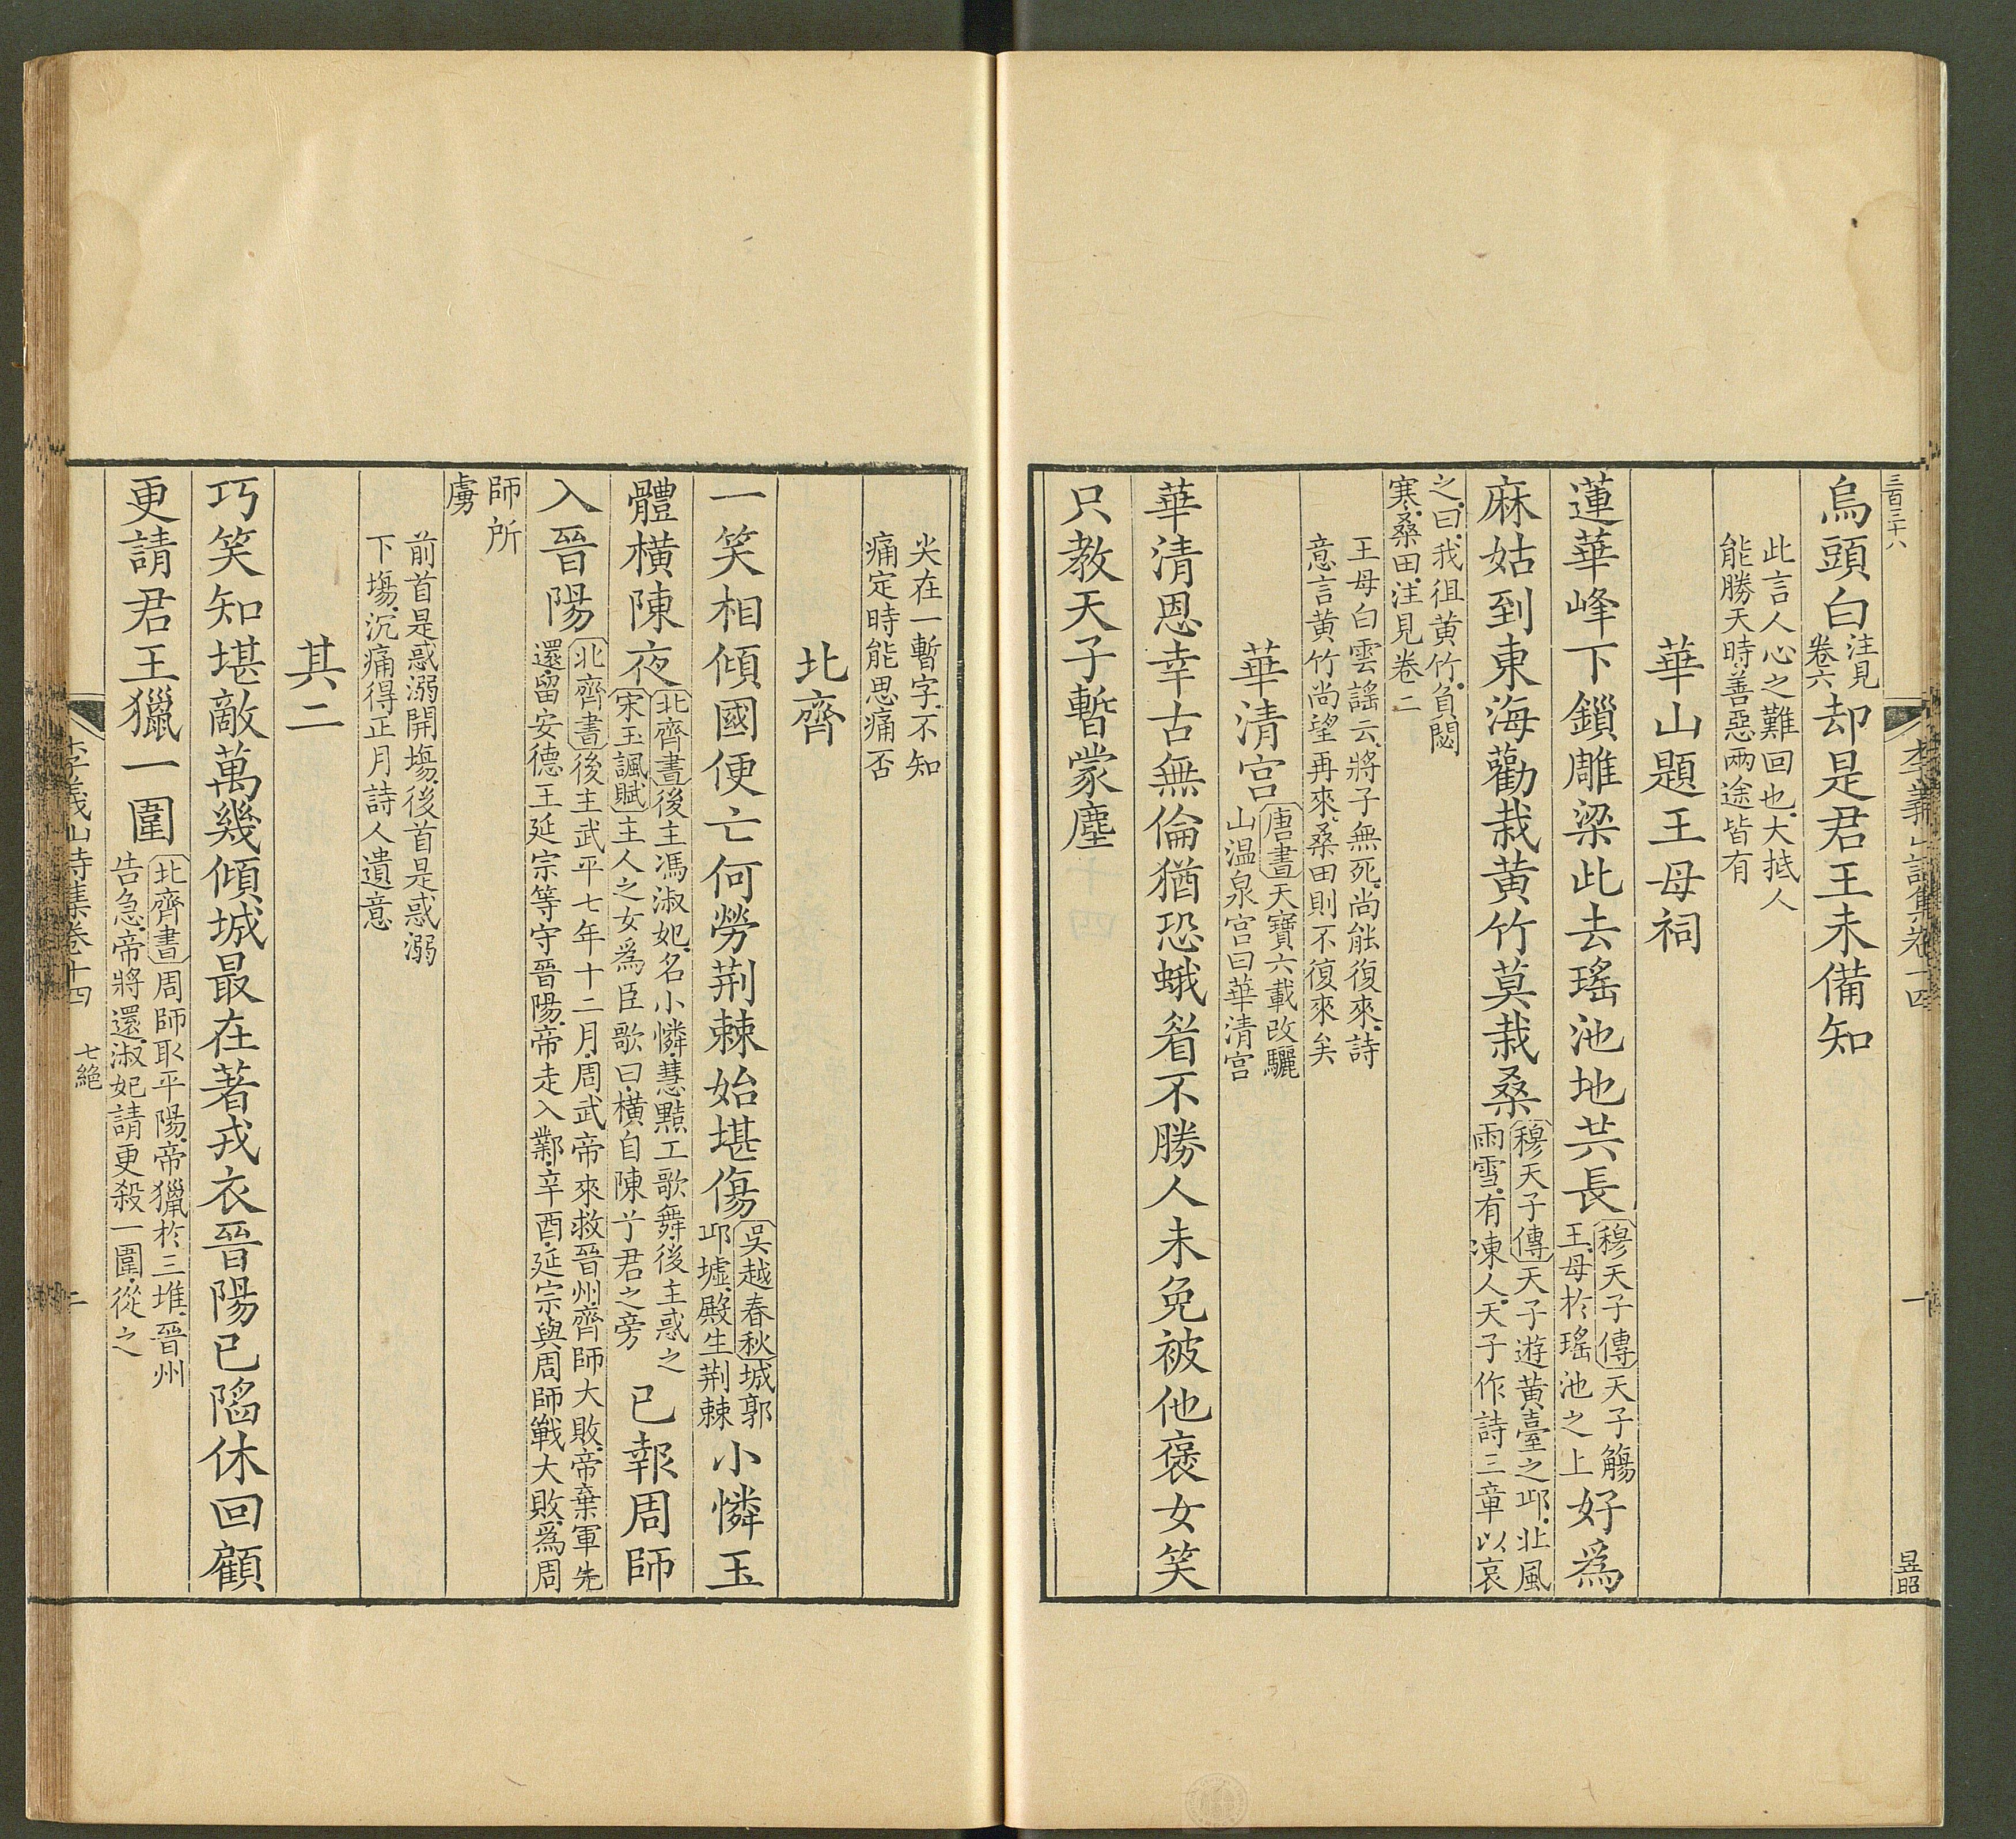 三百三十八
李義山詩集卷十四
一
昱昭
烏頭白注見卷六却是君王未備知
此言人心之難回也大抵人
能勝天時善惡兩途皆有
華山題王母祠
蓮華峰下鎖雕梁此去瑤池地共長穆天子傳天子觴王母於瑤池之上好爲
麻姑到東海勸栽黃竹莫栽桑穆天子傳天子遊黃臺之邱北風雨雪有凍人天子作詩三章以哀
之曰我徂黃竹負閟寒桑田注見卷二
王母白雲謠云將子無死尚能復來詩
意言黃竹尚望再來桑田則不復來矣
華清宮唐書天寶六載改驪山温泉宮曰華清宮
華清恩幸古無倫猶恐蛾眉不勝人未免被他褒女笑
只教天子暫蒙塵
尖在一暫字不知
痛定時能思痛否
北齊
一笑相傾國便亡何勞荆棘始堪傷吳越春秋城郭邱墟殿生荆棘小憐玉
體橫陳夜北齊書後主馮淑妃名小憐慧黠工歌舞後主惑之宋玉諷賦主人之女爲臣歌曰橫自陳兮君之旁已報周師
入晉陽北齊書後主武平七年十二月周武帝來救晉州齊師大敗帝棄軍先還留安德王延宗等守晉陽帝走入鄴辛酉延宗與周師戰大敗爲周
師所虜
前首是惑溺開塲後首是惑溺
下塲沉痛得正月詩人遺意
其二
巧笑知堪敵萬幾傾城最在著戎衣晉陽已陷休回顧
更請君王獵一圍北齊書周師取平陽帝獵於三堆晉州告急帝將還淑妃請更殺一圍從之
李義山詩集卷十四
七絕
二